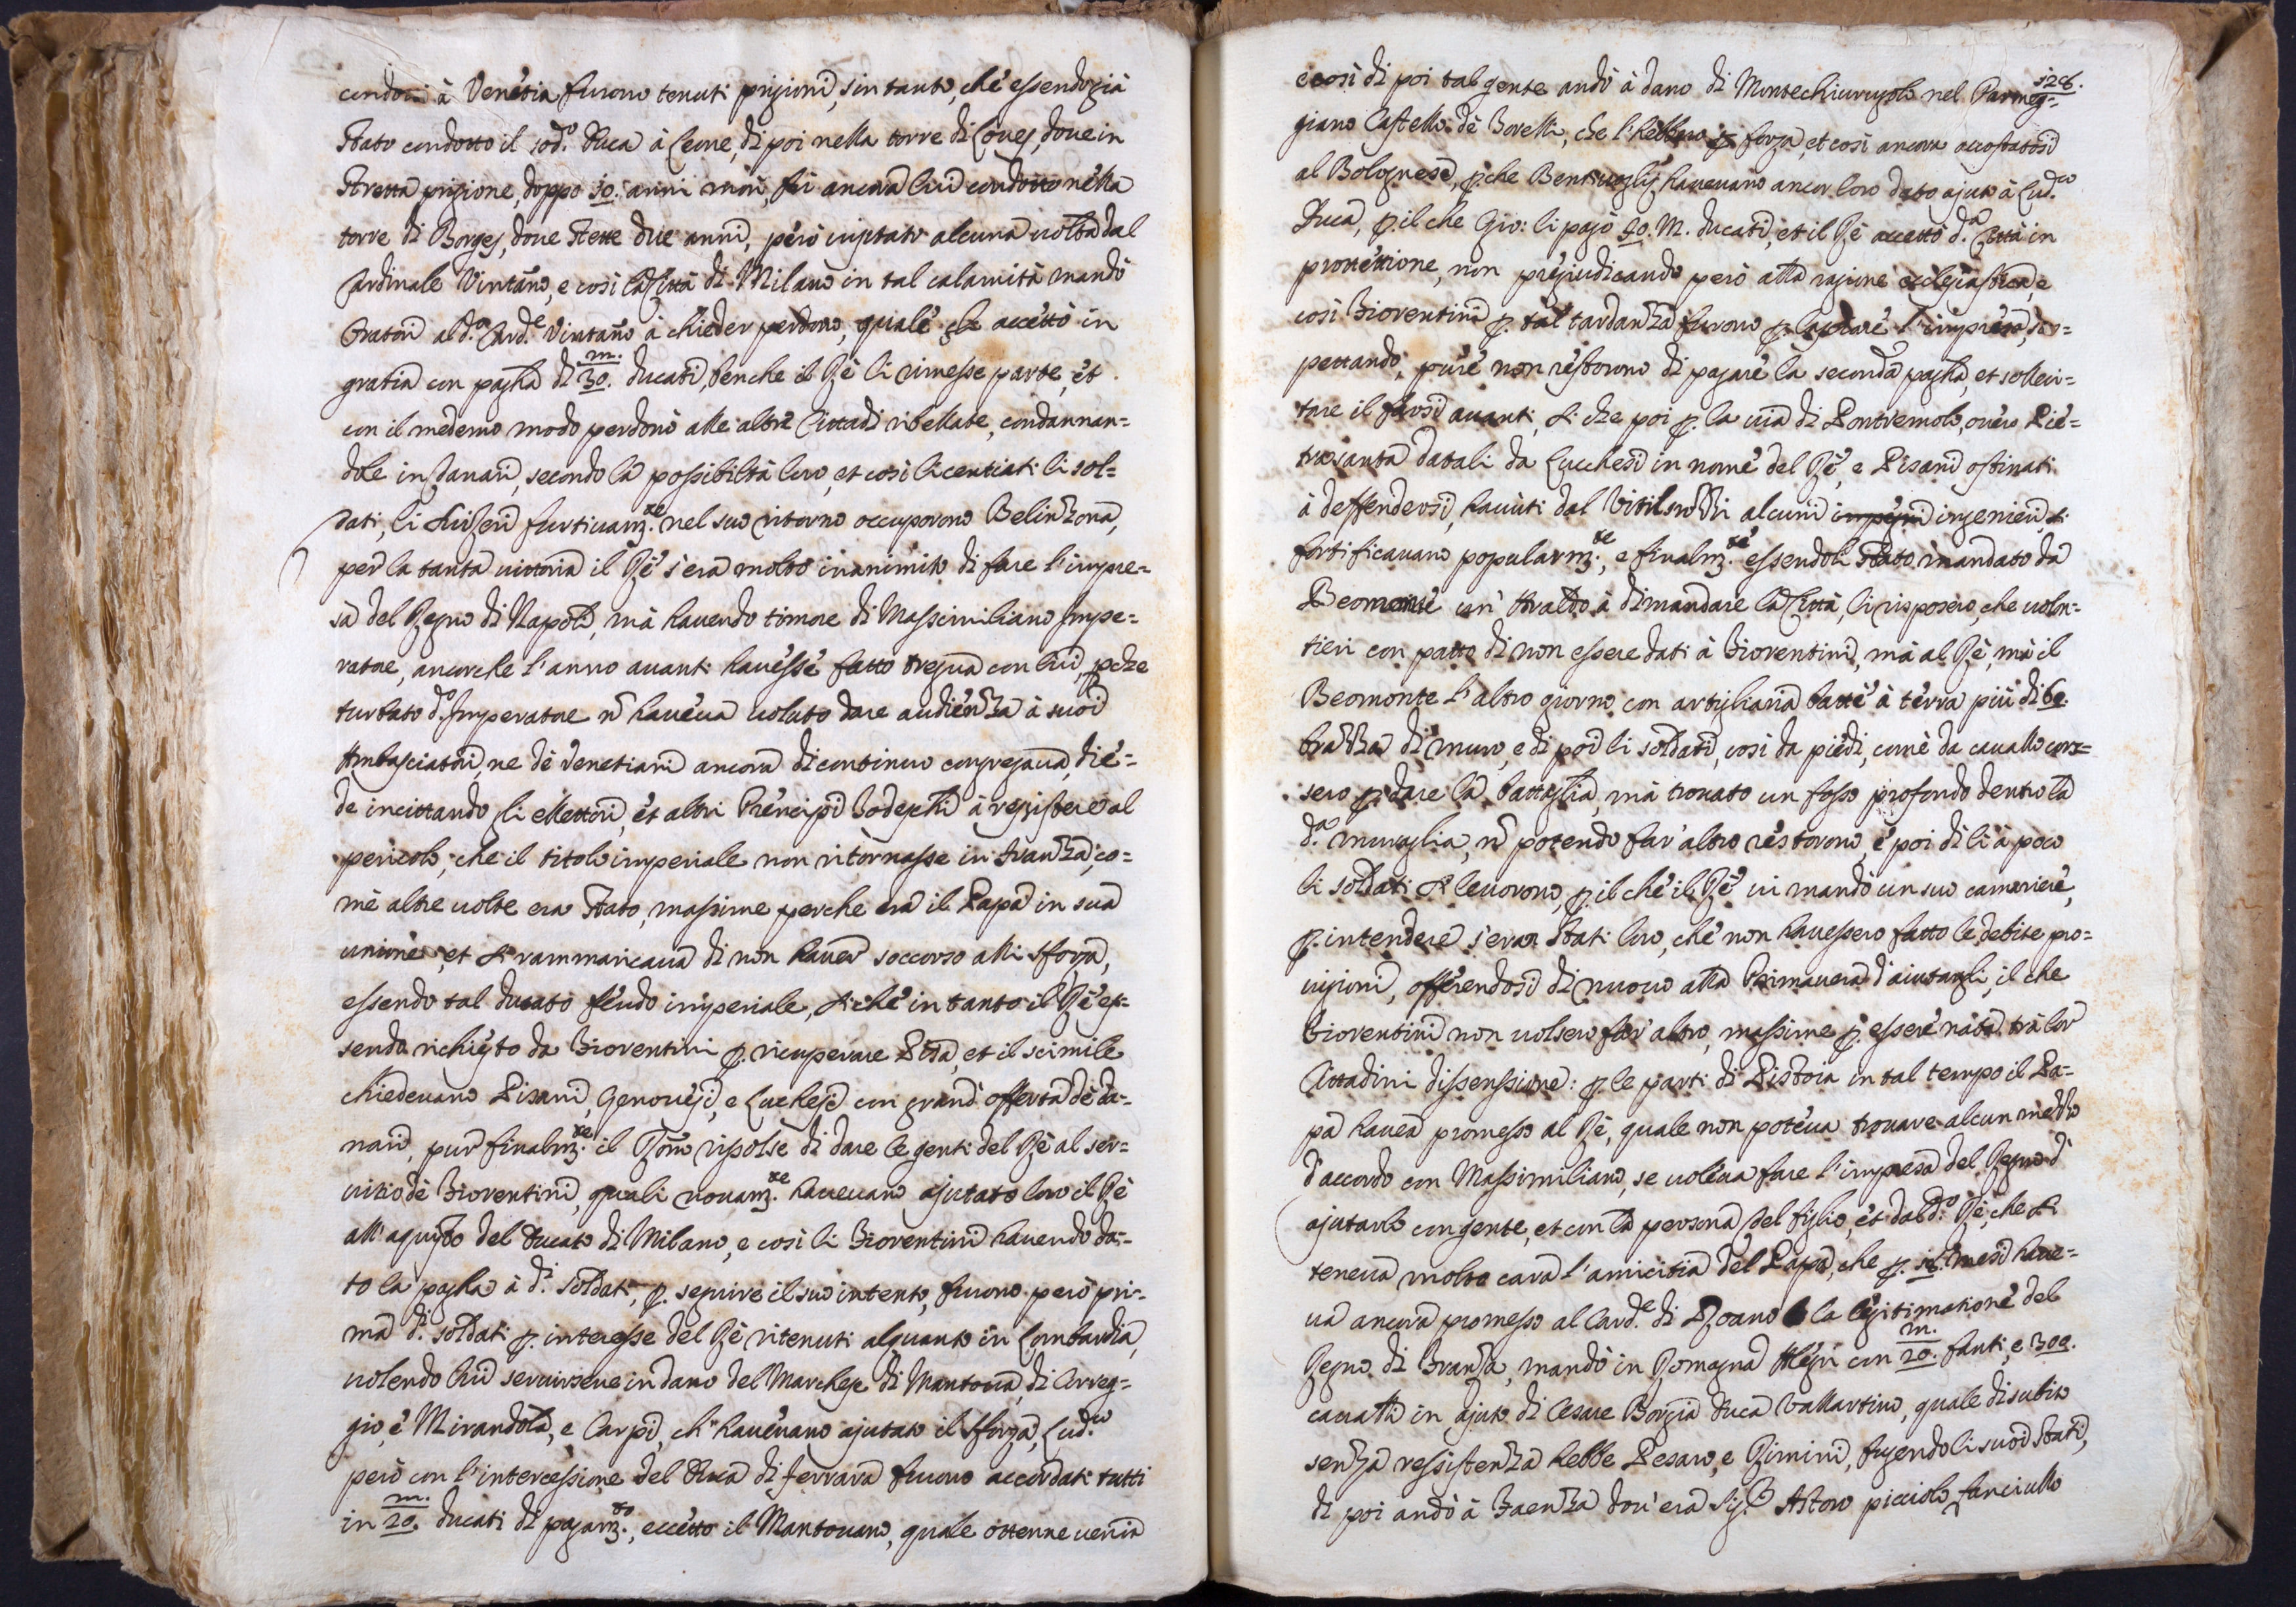 condotti à Venetia furono tenuti prigioni, sin tanto, che essendo già
stato condotto il sod.º Duca à Leone, di poi nella torre di Loues, doue in
stretta prigione, doppo 10. anni morì, fù ancora lui condotto nella
torre di Borges, doue stette due anni, però uisitato alcuna uolta dal
Cardinale Vintano, e così la Città di Milano in tal calamità mandò
Oratori al d.º Card.e Vintano à chieder perdono, quale accettò in
gratia con pagha di 30.m ducati, benche il Rè li rimesse parte, et
con il medemo modo perdonò alle altre Cittadi ribellate, condannan=
dole in danari, secondo la possibiltà loro, et così licentiati li sol=
dati, li Suizeri furtiuam.te nel suo ritorno occuporono Belinzona,
per la tanta uittoria il Rè s'era molto inanimito di fare l'impre=
sa del Regno di Napoli, mà hauendo timore di Massimiliano Impe=
ratore, ancorche l'anno auanti hauesse fatto tregua con lui, pche
turbato d.º Imperatore nõ haueua uoluto dare audienza à suoi
Ambasciatori, ne dè Venetiani ancora di continuo congregaua, die=
de incittando gli ellettori, et altri Prencipi Todeschi à resistere al
pericolo, che il titolo imperiale non ritornasse in Franza, co=
mè altre uolte era stato, massime perche era il Papa in sua
unione, et si rammaricaua di non hauer soccorso alli Sforza,
essendo tal ducato feudo imperiale, siche in tanto il Rè es=
sendo richiesto da Fiorentini p. ricuperare Pisa, et il scimile
chiedeuano Pisani, Genouesi, e Luchesi con grand' offerta dè da=
nari, pur finalm.te il Roano rissolse di dare le genti del Rè al ser=
uitio dè Fiorentini, quali nouam.te haueuano ajutato loro il Rè
all'aquisto del Ducato di Milano, e così li Fiorentini hauendo da=
to la pagha à d.i soldati, p. seguire il suo intento, furono però pri=
ma d.i soldati p. interesse del Rè ritenuti alquanto in Lombardia,
uolendo lui seruirsene in dano del Marchese di Mantoua, di Correg=
gio, è Mirandola, e Carpi, ch' haueuano ajutato il Sforza, Lud.co
però con l'intercessione del Duca di Ferrara furono accordati tutti
in 20.m ducati di pagam.to, eccetto il Mantouano, quale ottenne uenia
128.
e così di poi tal gente andò à dano di Montechiurugolo nel Parmeg=
giano Castello dè Torelli, che l'hebbero p. forza, et così ancora accostatosi
al Bolognese, p.che Bentiuoglij haueuano ancor loro dato ajuto à Lud.co
Duca, p. il che Gio: li pagò 40. M. ducati, et il Rè accettò d.a Città in
prottettione, non pregiudicando però alla ragione ecclesiastica, e
così Fiorentini p. tal tardanza furono p. lasciare l'impresa, so=
pettando, pure non restorono di pagare la seconda pagha, et solleci=
tare il farsi auanti, si che poi p. la uia di Pontremolo, ouero Pie=
trasanta datali da Lucchesi in nome del Rè, e Pisani ostinati
à deffendersi, hauuti dal Vitilozzi alcuni ingenieri, si
fortificauano popularm.te, e finalm.te essendoli stato mandato da
Beomonte un' Araldo à dimandare la Città, li risposero, che uolon=
tieri con patto di non essere dati à Fiorentini, mà al Rè, mà il
Beomonte l'altro giorno con artigliaria battè à terra più di 60.
brazza di muro, e di poi li soldati, così da piedi, come da cauallo cor=
sero p. dare la battaglia, mà trouato un fosso profondo dentro la
d.a muraglia, nõ potendo far' altro restorono, è poi di lì à poco
li soldati si leuorono, p. il che il Rè ui mandò un suo cameriere,
p. intendere s'eran stati loro, che non hauessero fatto le debite pro=
uigioni, offerendosi di nuouo alla Primauera d'aiutargli, il che
Fiorentini non uolsero far' altro, massime p. essere nata trà lor
Cittadini dissenssione: p. le parti di Pistoia in tal tempo il Pa=
pa hauea promesso al Rè, quale non poteua trouare alcun mezzo
d'accordo con Massimiliano, se uoleua fare l'impresa del Regno d'
ajutarlo con gente, et con la persona del figlio, et dal d.º Rè, che si
teneua molto cara l'amicitia del Papa, che p. 18. mesi haue=
ua ancora promesso al Card.e di Roano la legitimatione del
Regno di Franza, mandò in Romagna Alegri con 20.m fanti, e 300.
caualli in ajuto di Cesare Borgia Duca Vallartino, quale di subito
senza ressistenza hebbe Pesaro, e Rimini, fugendo li suoi stati,
di poi andò à Faenza dou' era Sig.r Astoro picciolo fanciullo